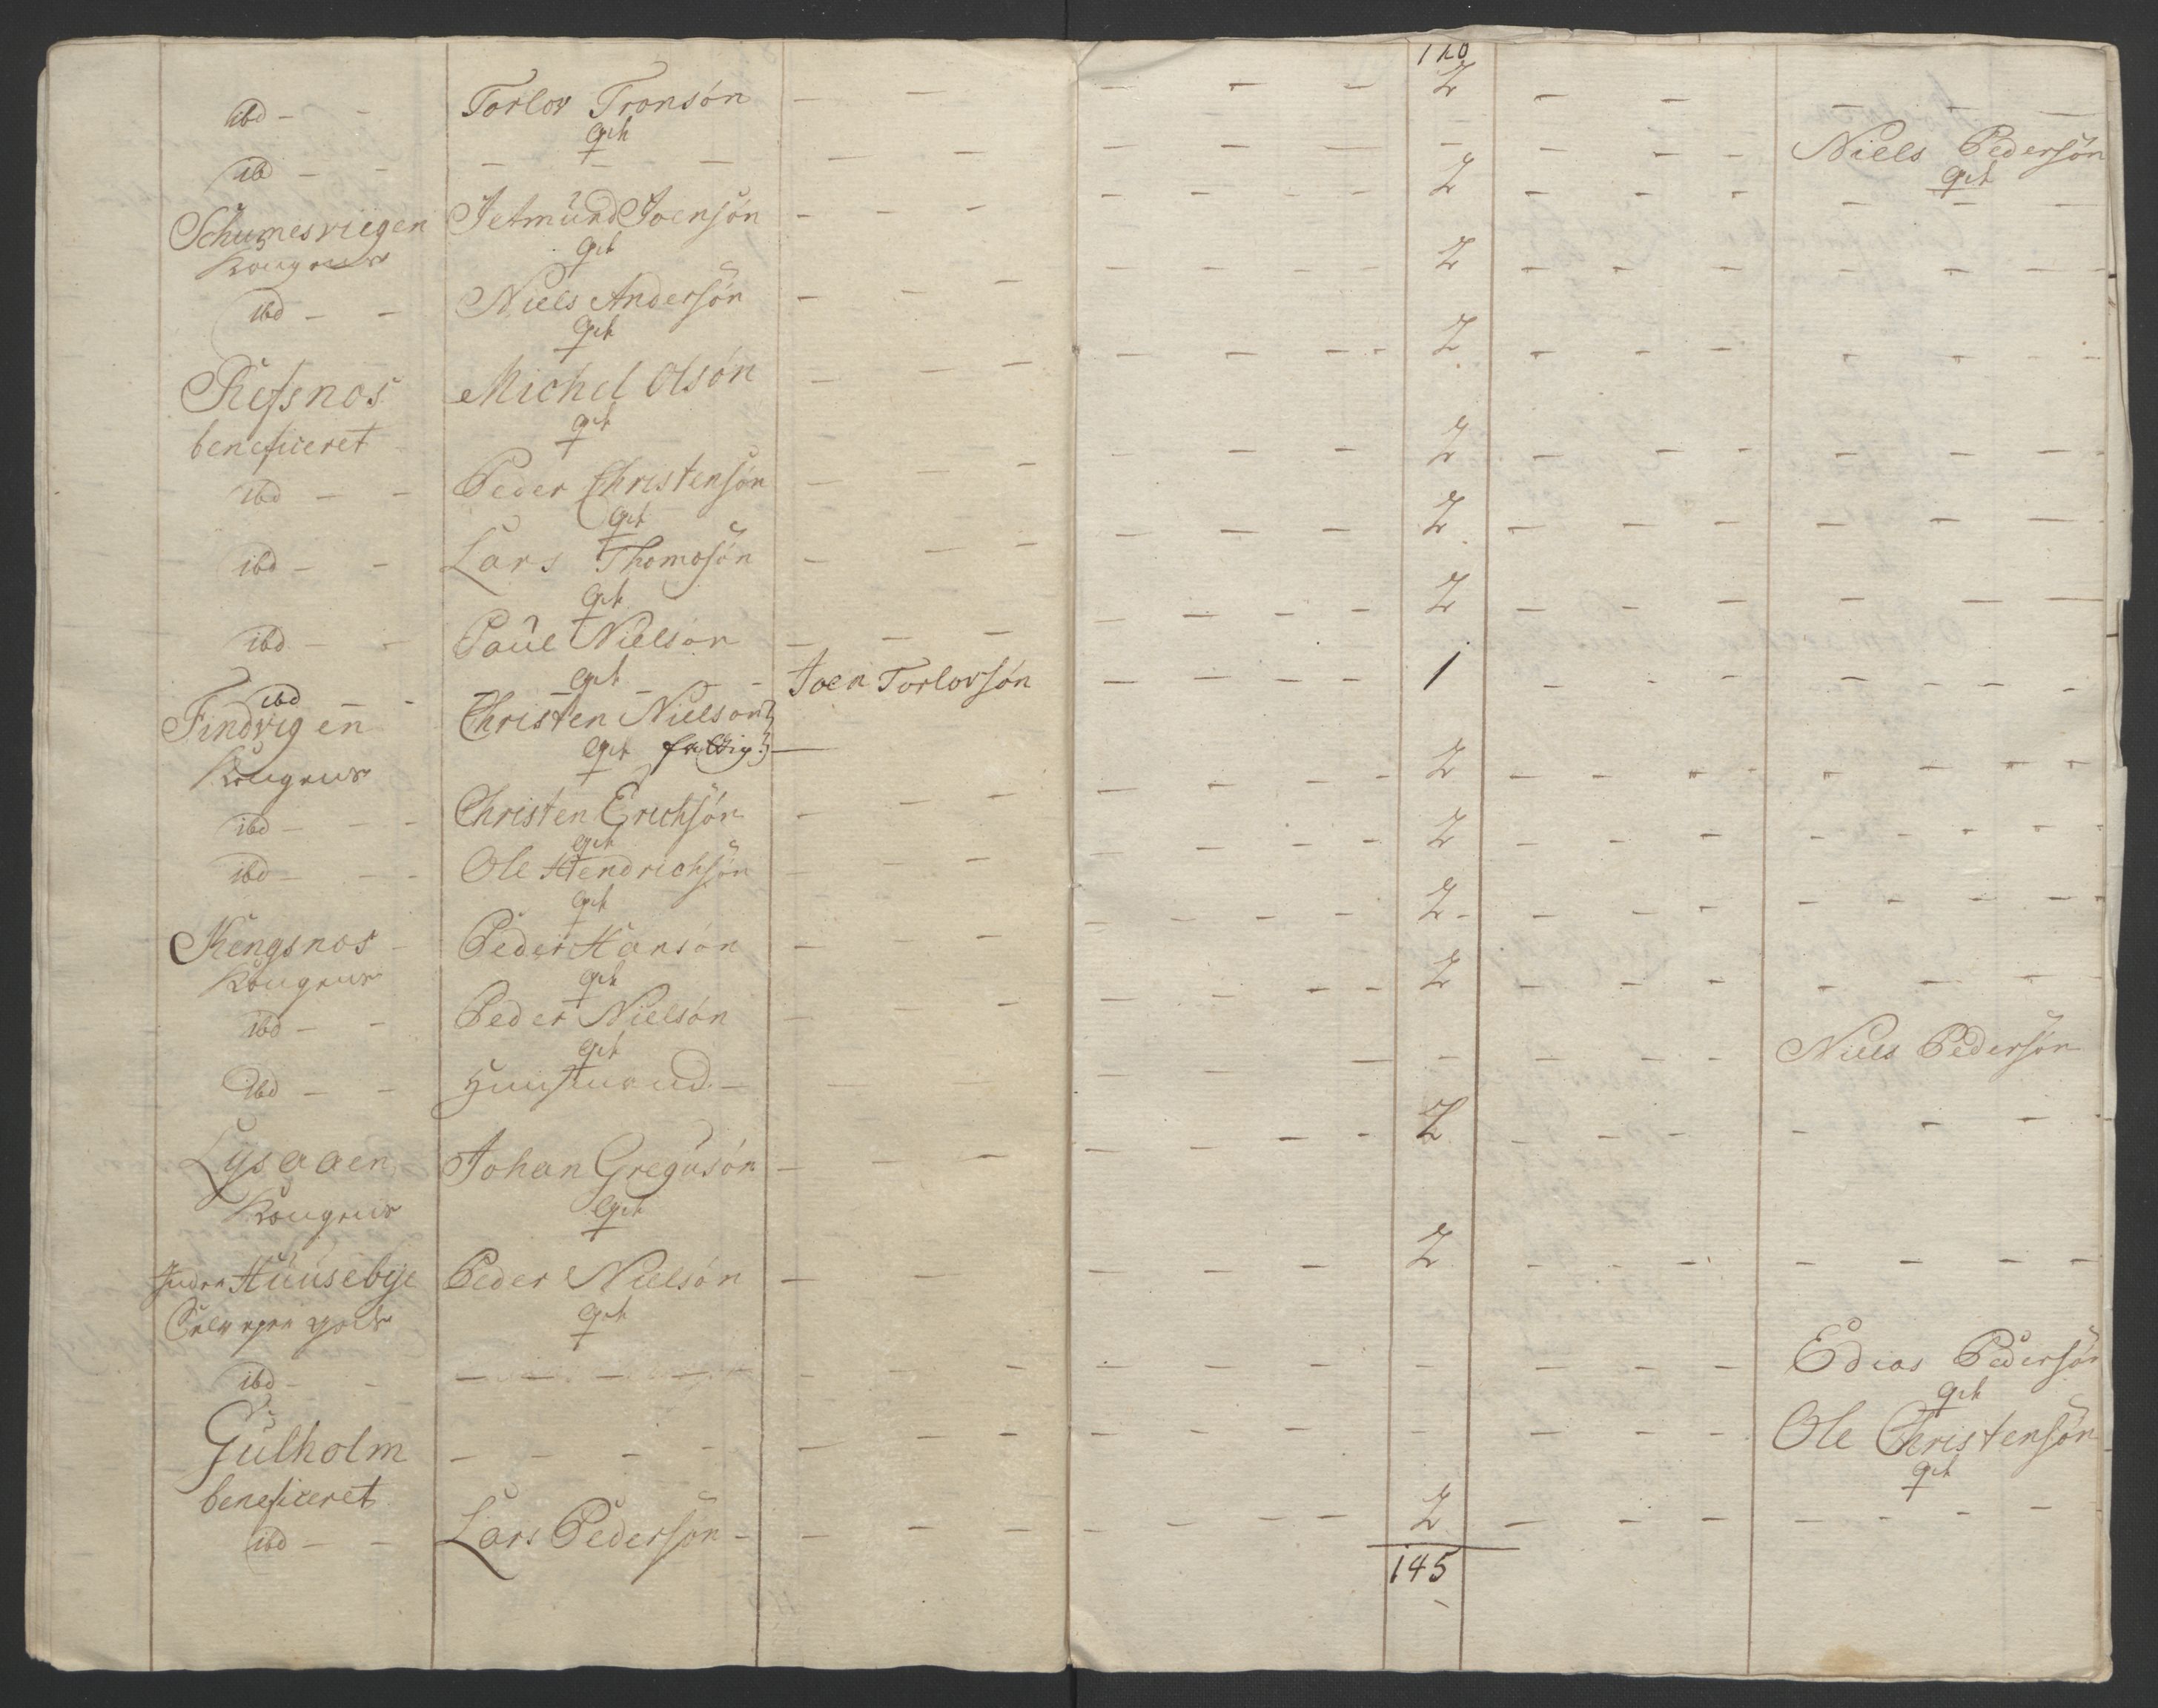 110
ibd - - Torlov Tronsøn - - - - - 2 - - - - -
gift
ibd - - - - - - - - - - - - - Niels Pedersøn
gift
Schumesviigen Jetmünd Joensøn - - - - - - 2 - - - - - -
Kongens gift
ibd - - Niels Andersøn - - - - - - 2 - - - - - -
gift
Refsnos Michel Olsøn - - - - - - 2 - - - - - -
beneficeret gift
ibd - - Peder Christensøn - - - - - - 2 - - - - - -
gift
ibd - - Lars Thomosøn - - - - - - 2 - - - - - -
gift
ibd - - Paül Nielsøn - - - - - - 2 - - - - - -
gift
ibd - - - Joen Torlovsøn - - - - 1 - - - - - -
Findvigen Christen Nielsøn
Kongens gift fattig - - - - - 2 - - - - - -
ibd - - - Christen Erichsøn - - - - - - 2 - - - - - -
gift
ibd - - - Ole Hendrichsøn - - - - - - 2 - - - - - -
gift
Rengsnos - Peder Hansøn - - - - - - 2 - - - - - -
Kongens gift
ibd - - Peder Nielsøn - - - - - -
gift
ibd - - Huusmand - - - - - - - - - Niels Pedersøn
Lysaaen Johan Gregüsøn - - - - - - 2 - - - - - -
Kongens gift
Indre Hüüsebye Peder Nielsøn - - - - - - 2 - - - - - -
gods gift
ibd - - - - - - - - - - - - - - - Edias Pedersøn
gift
Gülholm - - - - - - - - - - - - - - Ole Christensøn
beneficeret gift
ibd - - Lars Pedersøn - - - - - - - 2 - - - - - -
145